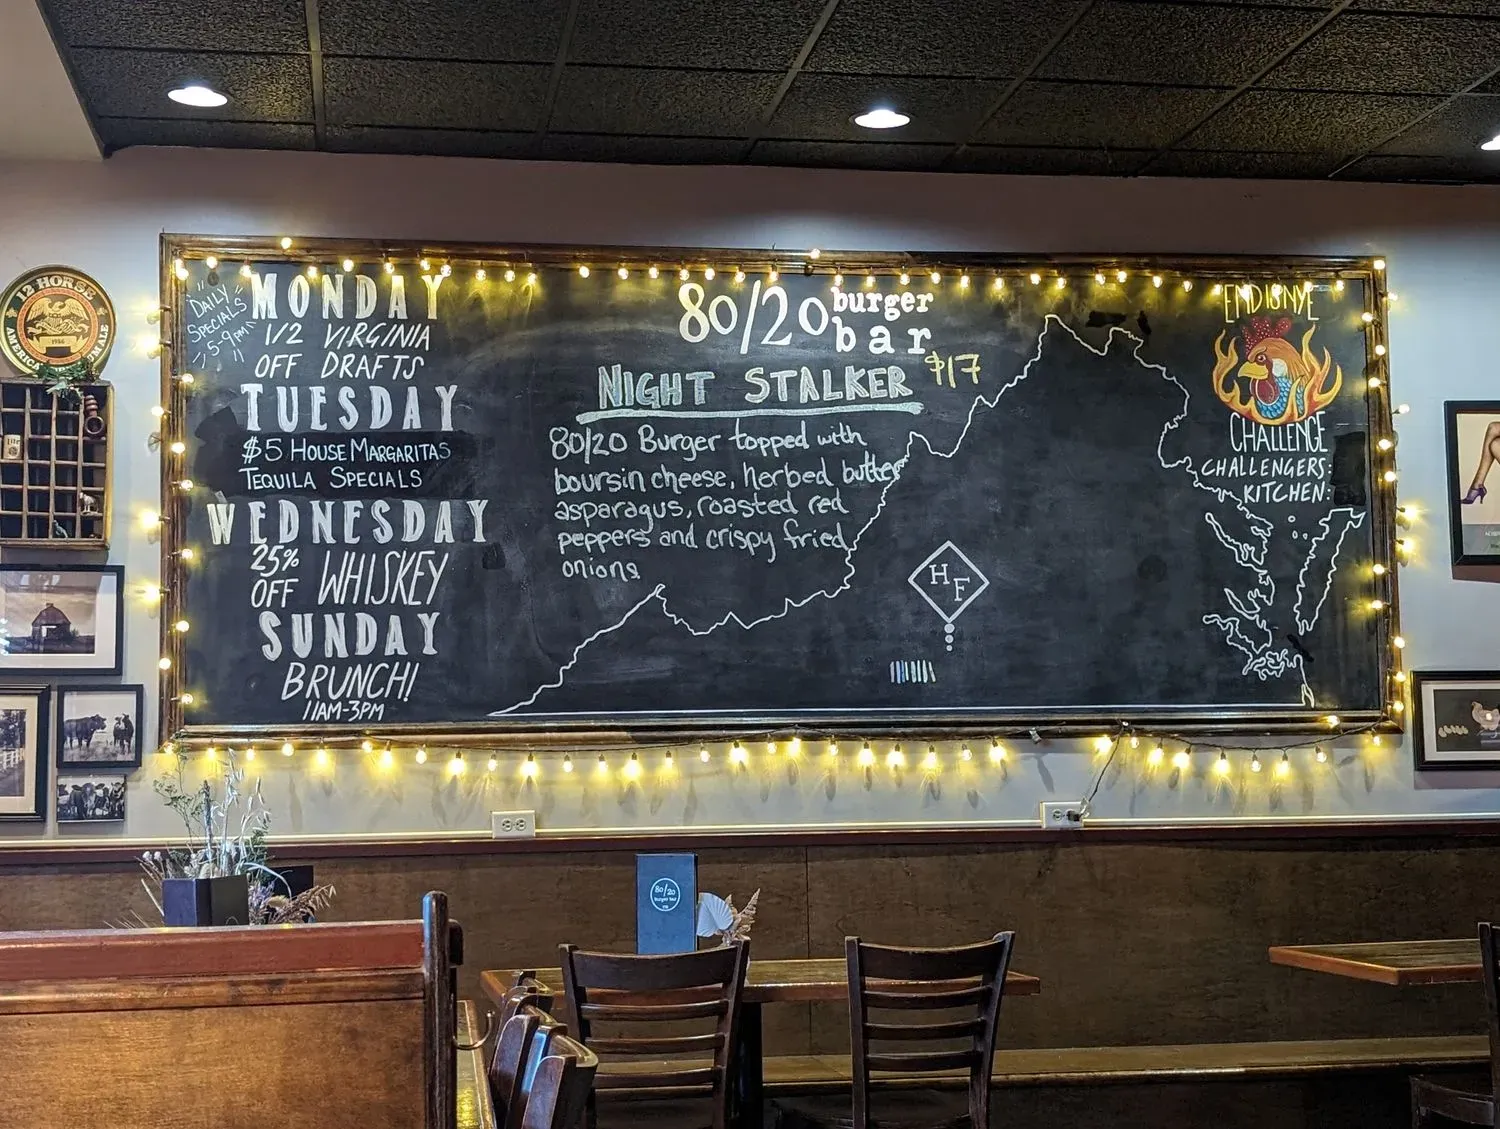 DAILY
SPECIALS
5-9pm
MONDAY
1/2 VIRGINIA
OFF DRAFTS
TUESDAY
$5 HOUSE MARGARITAS
TEQUILA SPECIALS
WEDNESDAY
25%
OFF WHISKEY
SUNDAY
BRUNCH!
11AM-3PM
80/20 burger
bar
NIGHT STALKER $17
80/20 Burger topped with
boursin cheese, herbed butter
asparagus, roasted red
peppers and crispy fried
onions
H
F
CHALLENGE
CHALLENGERS:
KITCHEN:
12 HORSE
80/20
burger bar